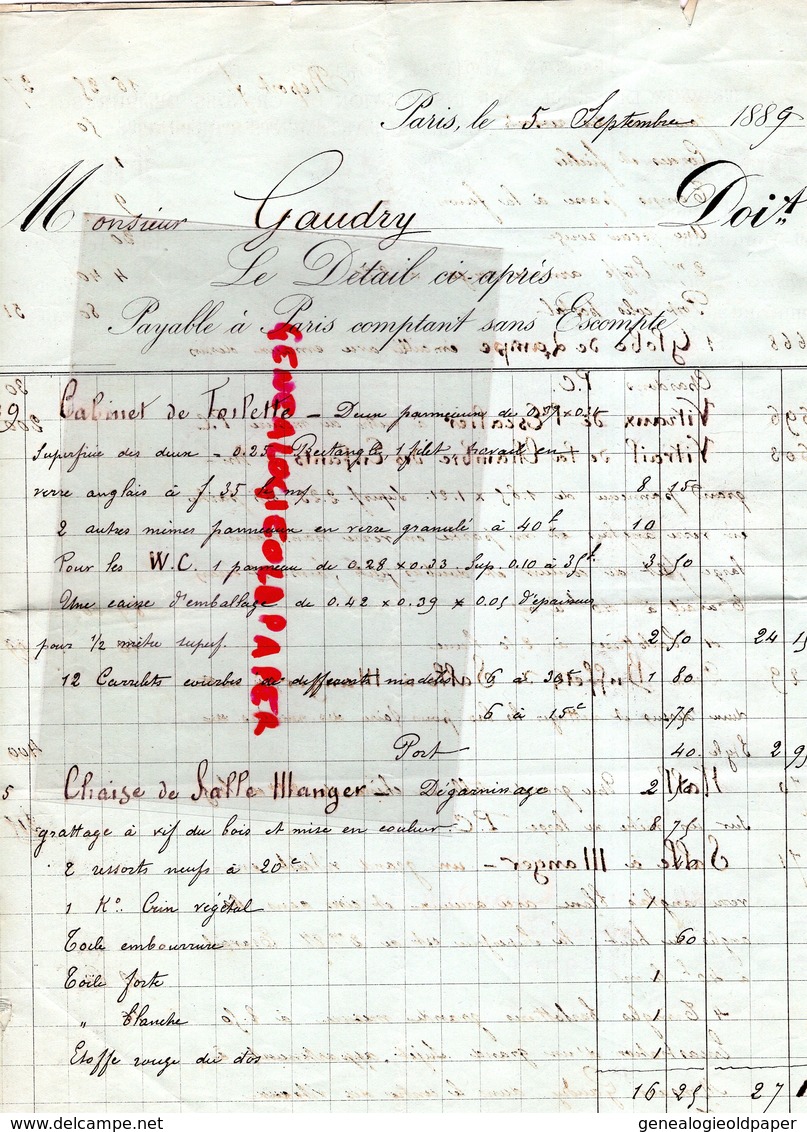 Paris, le 5 Septembre 1889
Monsieur Gaudry Doit
Le Détail ci-après
Payable à Paris comptant sans Escompte
Cabinet de Toilette – Deux panneaux de
Superficie des deux – 0.25 Rectangle, 1 filet travail en
verre anglais à f 35 le m 8 75
2 autres mêmes panneaux en verre granulé à 40f 10
Pour les W.C. 1 panneau de 0.28 x 0.33 Sup. 0.10 à 35f. 3 50
Une caisse d'emballage de 0.42 x 0.39 x 0.05 d'épaisseur
pour 1/2 mètre superf. 2 50 24
12 Carrelets courbés de differents modèles 6 à 30c 1 80
6 à 15c
Port 40 2 95
5 Chaise de Salle Manger – Dégarnissage 2
grattage à vif du bois et mise en couleur 8 75
2 ressorts neufs à 20c
1 Ko. Crin végétal 1
Toile embourrure 60
Toile forte 1
" blanche 1
Etoffe rouge du dos 1
16 25 27 1
GENEALOGIEOLDPAPER
genealogieoldpaper